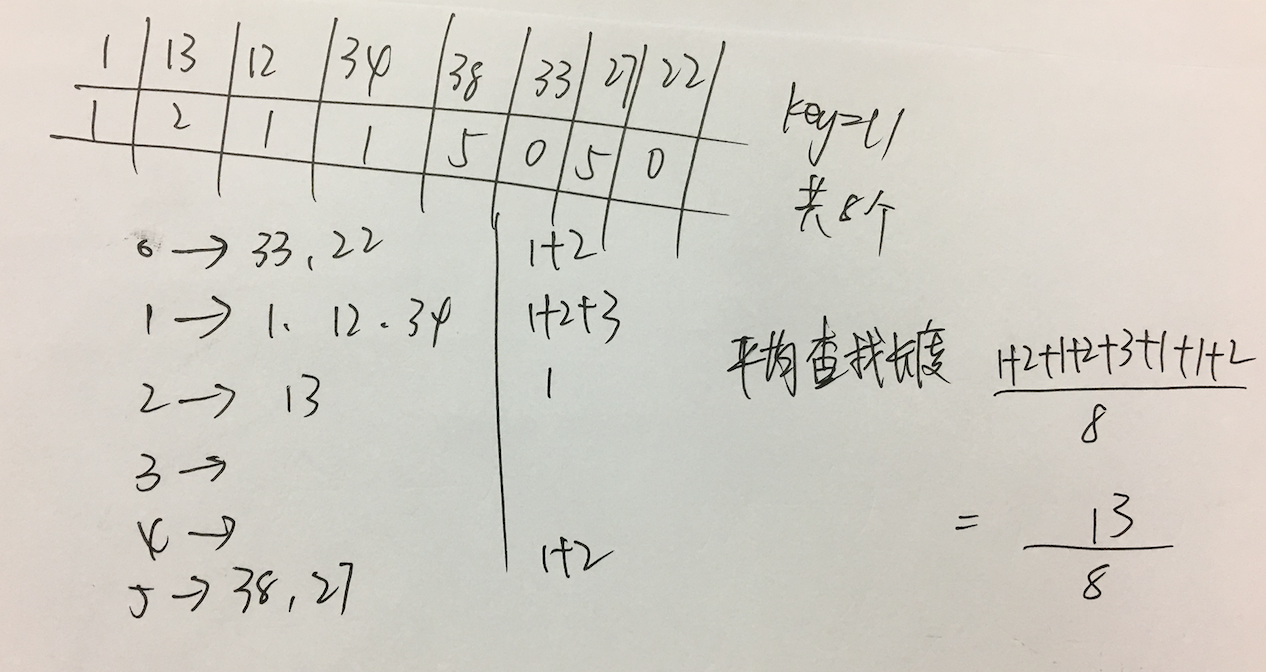 1 13 12 34 38 33 27 22
1 2 1 1 5 0 5 0
key=11
共8个
0 → 33, 22 1+2
1 → 1. 12. 34 1+2+3
2 → 13 1
3 →
4 →
5 → 38, 27 1+2
平均查找长度 1+2+1+2+3+1+1+2
8
= 13
8